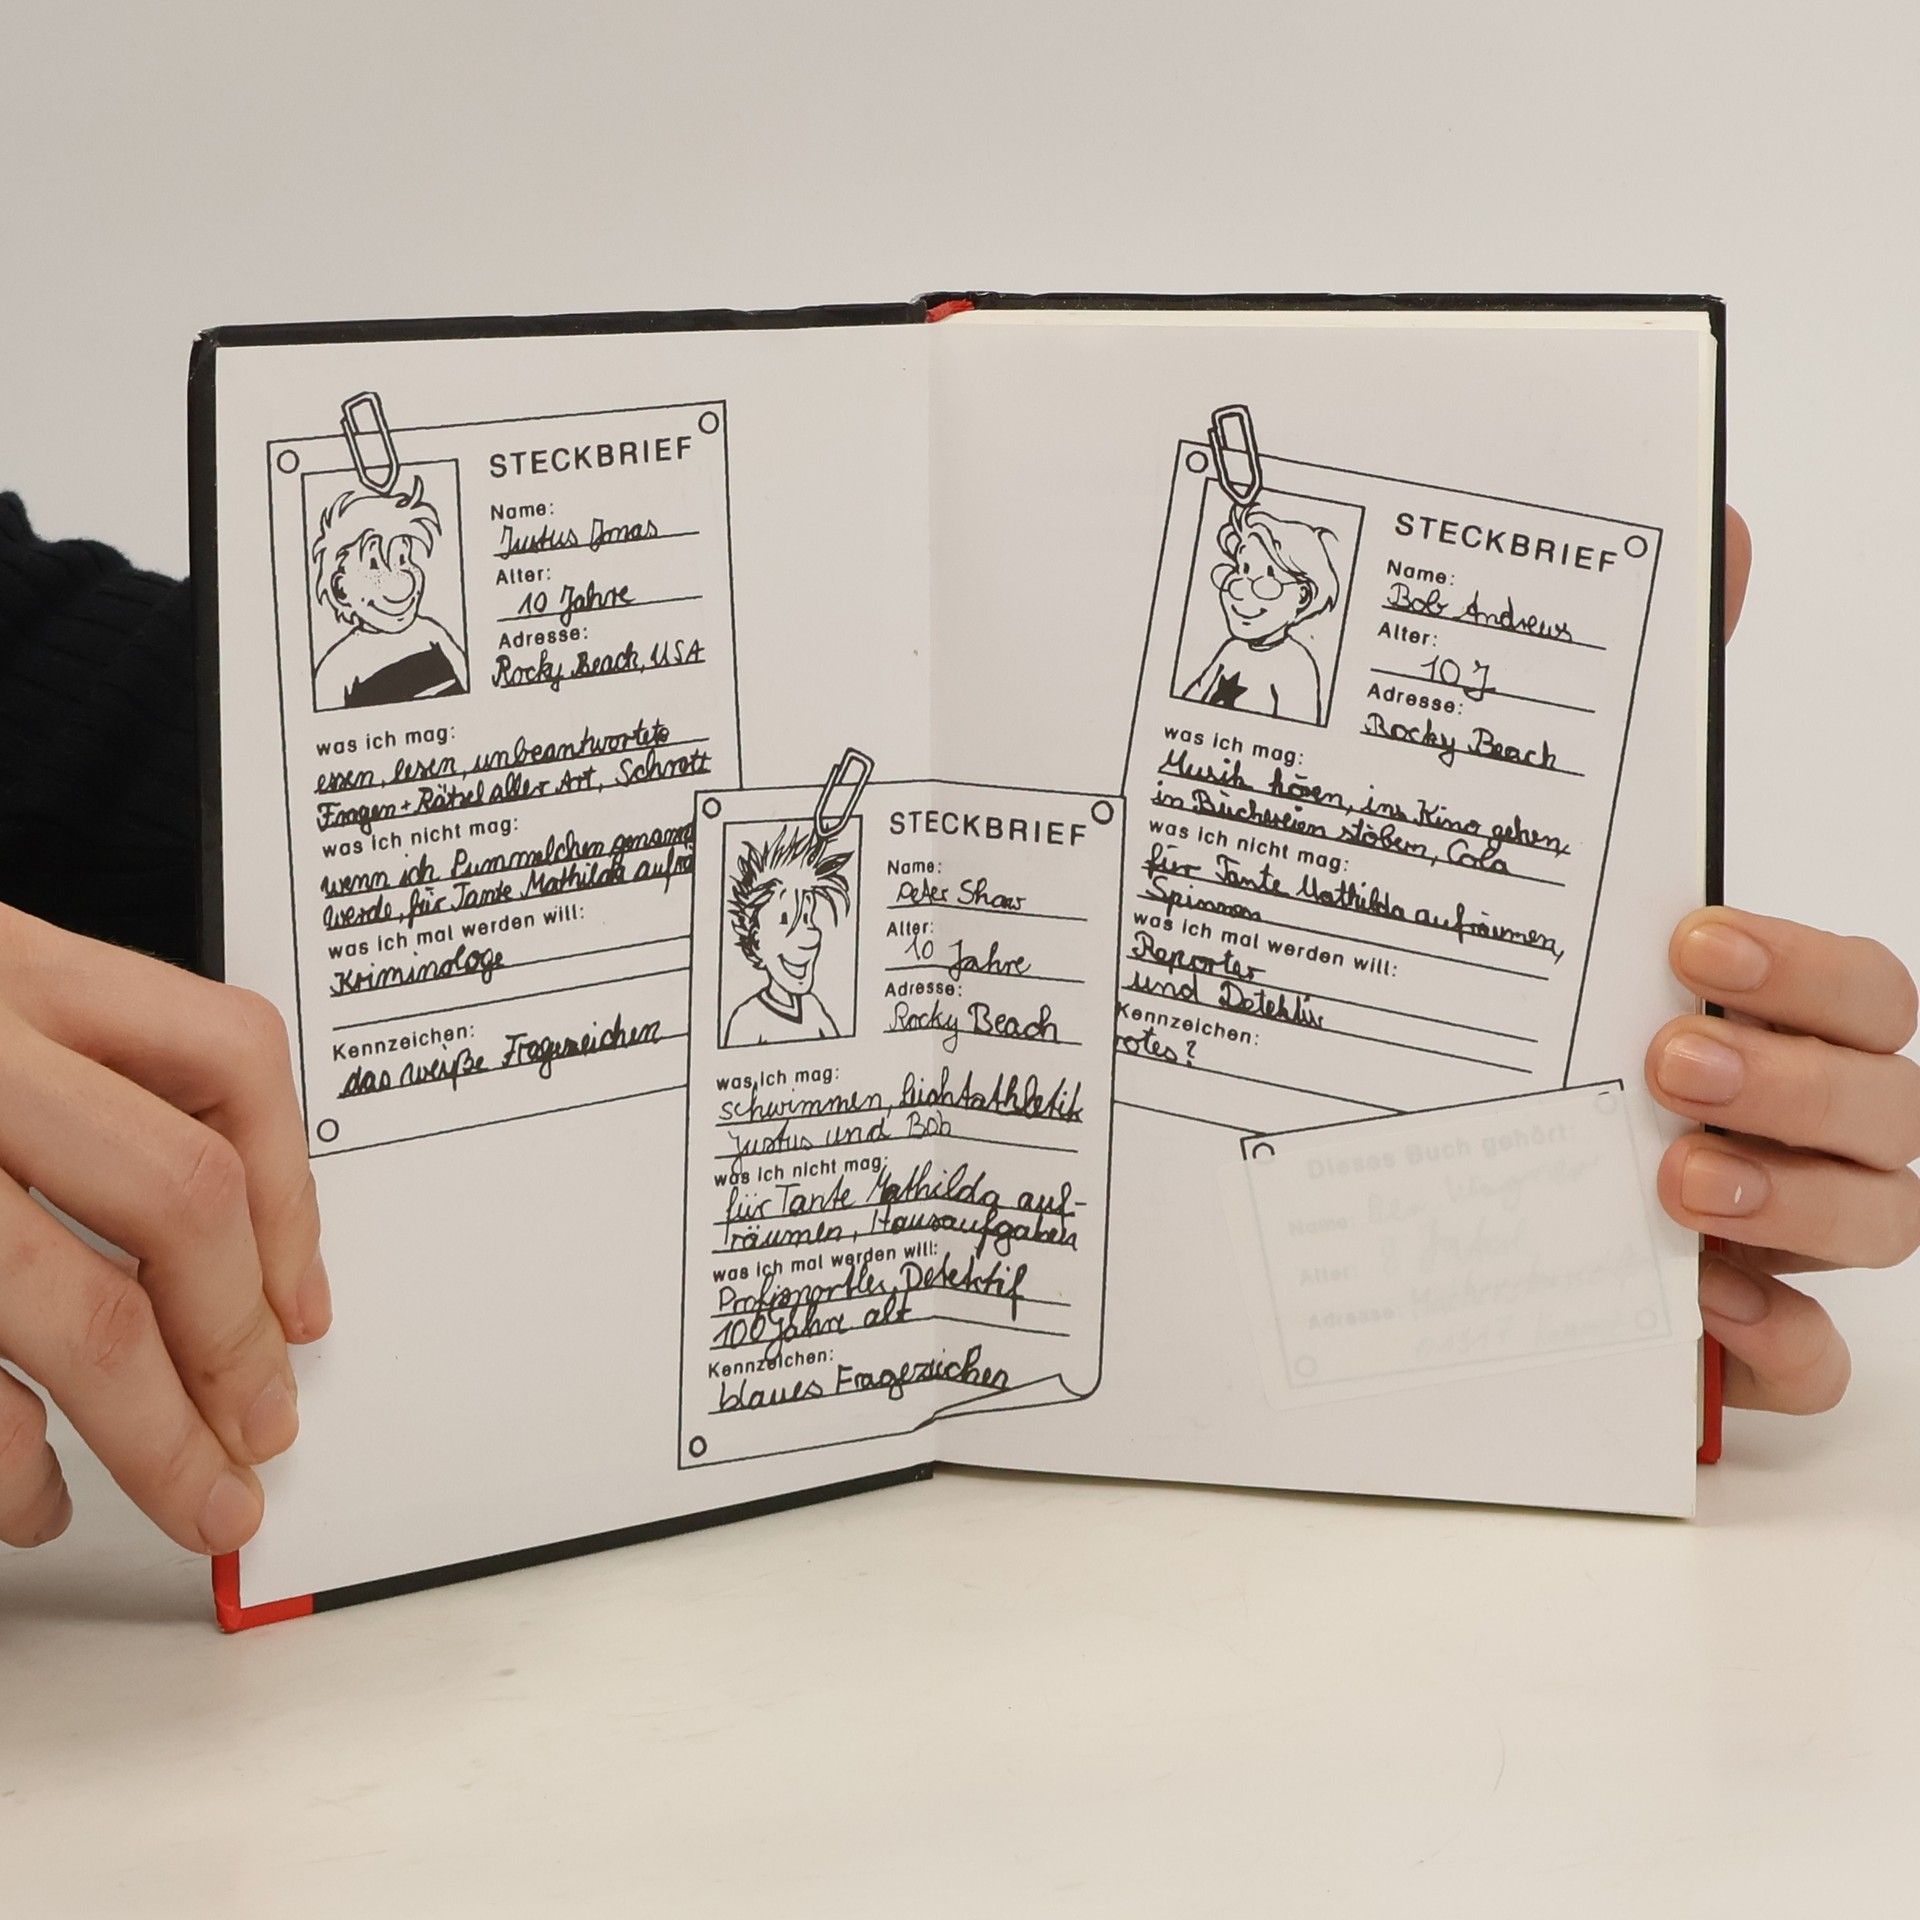 STECKBRIEF
Name:
Justus Jonas
Alter:
10 Jahre
Adresse:
Rocky Beach, USA
was ich mag:
essen, lesen, unbeantwortete
Fragen + Rätsel aller Art, Schrott
was ich nicht mag:
wenn ich Pummelchen genannt
werde, für Tante Mathilda aufrä
was ich mal werden will:
Kriminologe
Kennzeichen:
das weiße Fragezeichen
STECKBRIEF
Name:
Peter Shaw
Alter:
10 Jahre
Adresse:
Rocky Beach
was ich mag:
schwimmen, Leichtathletik
Justus und Bob
was ich nicht mag:
für Tante Mathilda auf-
räumen, Hausaufgaben
was ich mal werden will:
Profisportler, Detektif
100 Jahre alt
Kennzeichen:
blaues Fragezeichen
STECKBRIEF
Name:
Bob Andrews
Alter:
10 J
Adresse:
Rocky Beach
was ich mag:
Musik hören, ins Kino gehen,
in Büchereien stöbern, Cola
was ich nicht mag:
für Tante Mathilda aufräumen,
Spinnen
was ich mal werden will:
Reporter
und Detektiv
Kennzeichen:
rotes ?
Dieses Buch gehört
Name
Alter
Adresse